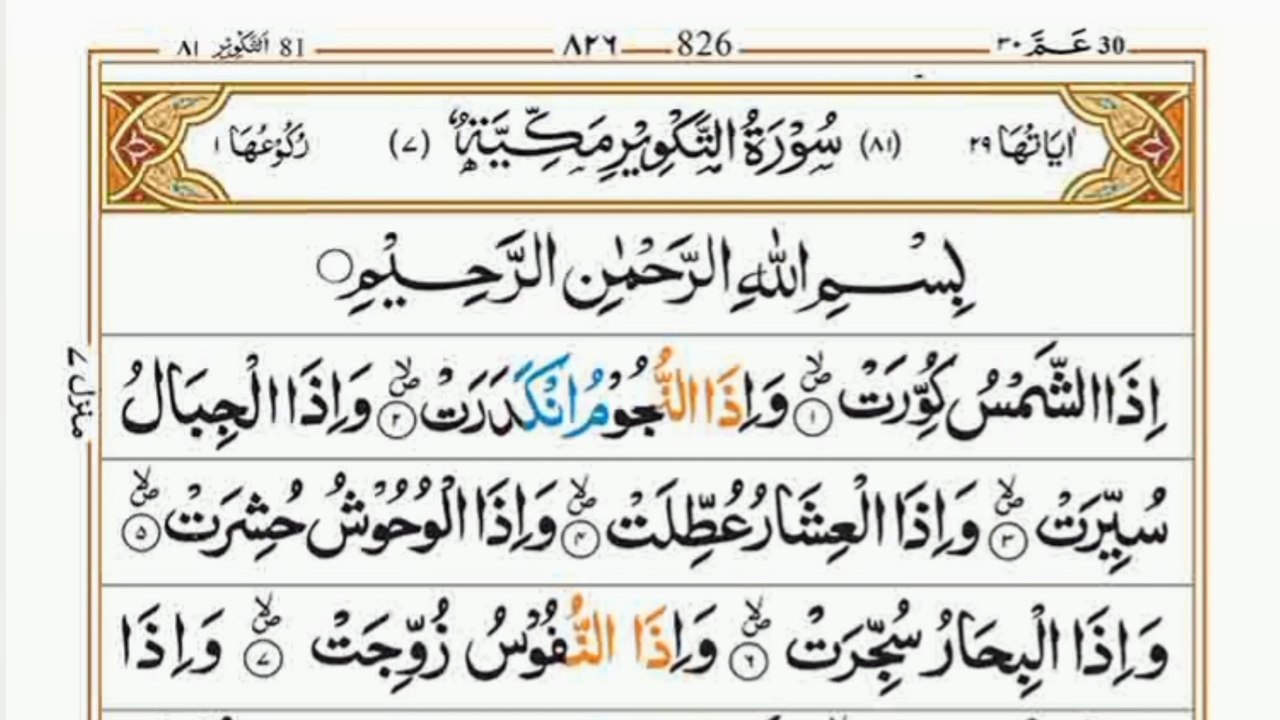 30 عَمَّ ٣٠ 826 ٨٢٦ 81 اَلتَّكْوِيْر ٨١
اٰيَاتُهَا ٢٩ (٨١) سُوْرَةُ التَّكْوِيْرِ مَكِّيَّةٌ (٧) رُكُوْعُهَا ١
بِسْمِ اللّٰهِ الرَّحْمٰنِ الرَّحِيْمِ
اِذَا الشَّمْسُ كُوِّرَتْ ۪ۙ ١ وَاِذَا النُّجُوْمُ انْكَدَرَتْ ۪ۙ ٢ وَاِذَا الْجِبَالُ
سُيِّرَتْ ۪ۙ ٣ وَاِذَا الْعِشَارُ عُطِّلَتْ ۪ۙ ٤ وَاِذَا الْوُحُوْشُ حُشِرَتْ ۪ۙ ٥
وَاِذَا الْبِحَارُ سُجِّرَتْ ۪ۙ ٦ وَاِذَا النُّفُوْسُ زُوِّجَتْ ۪ۙ ٧ وَاِذَا
منزل ٧